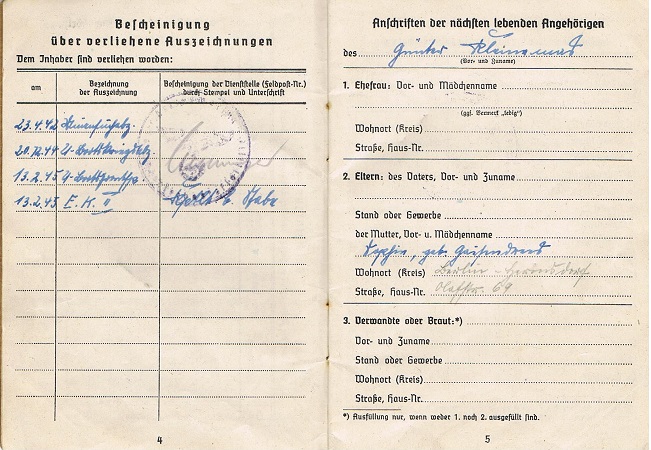 Bescheinigung
über verliehene Auszeichnungen
Dem Inhaber sind verliehen worden:
am
Bezeichnung
der Auszeichnung
Bescheinigung der Dienststelle (Feldpost-Nr.)
durch Stempel und Unterschrift
23.4.42
20.12.44 U-
13.2.45 U-
13.2.45 E.K. II
4
Anschriften der nächsten lebenden Angehörigen
des Günter
(Vor- und Zuname)
1. Ehefrau: Vor- und Mädchenname
(ggf. Vermerk „ledig")
Wohnort (Kreis)
Straße, Haus-Nr.
2. Eltern: des Vaters, Vor- und Zuname
Stand oder Gewerbe
der Mutter, Vor- u. Mädchenname
Sophie, geb.
Wohnort (Kreis) Berlin - Hermsdorf
Straße, Haus-Nr. Olafstr. 69
3. Verwandte oder Braut:*)
Vor- und Zuname
Stand oder Gewerbe
Wohnort (Kreis)
Straße, Haus-Nr.
*) Ausfüllung nur, wenn weder 1. noch 2. ausgefüllt sind.
5